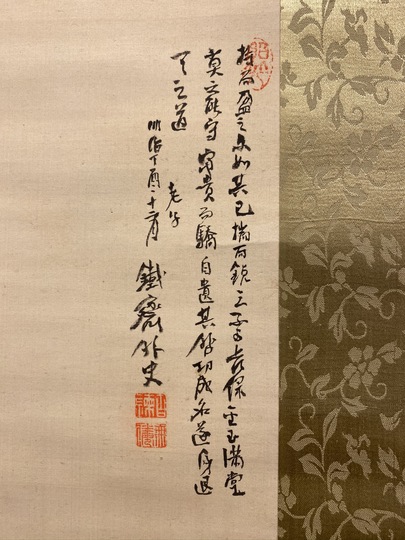 持而盈之不如其已揣而銳之不可長保金玉滿堂
莫之能守富貴而驕自遺其咎功成名遂身退
天之道
老子
明治丁酉十二月
鐵齋外史